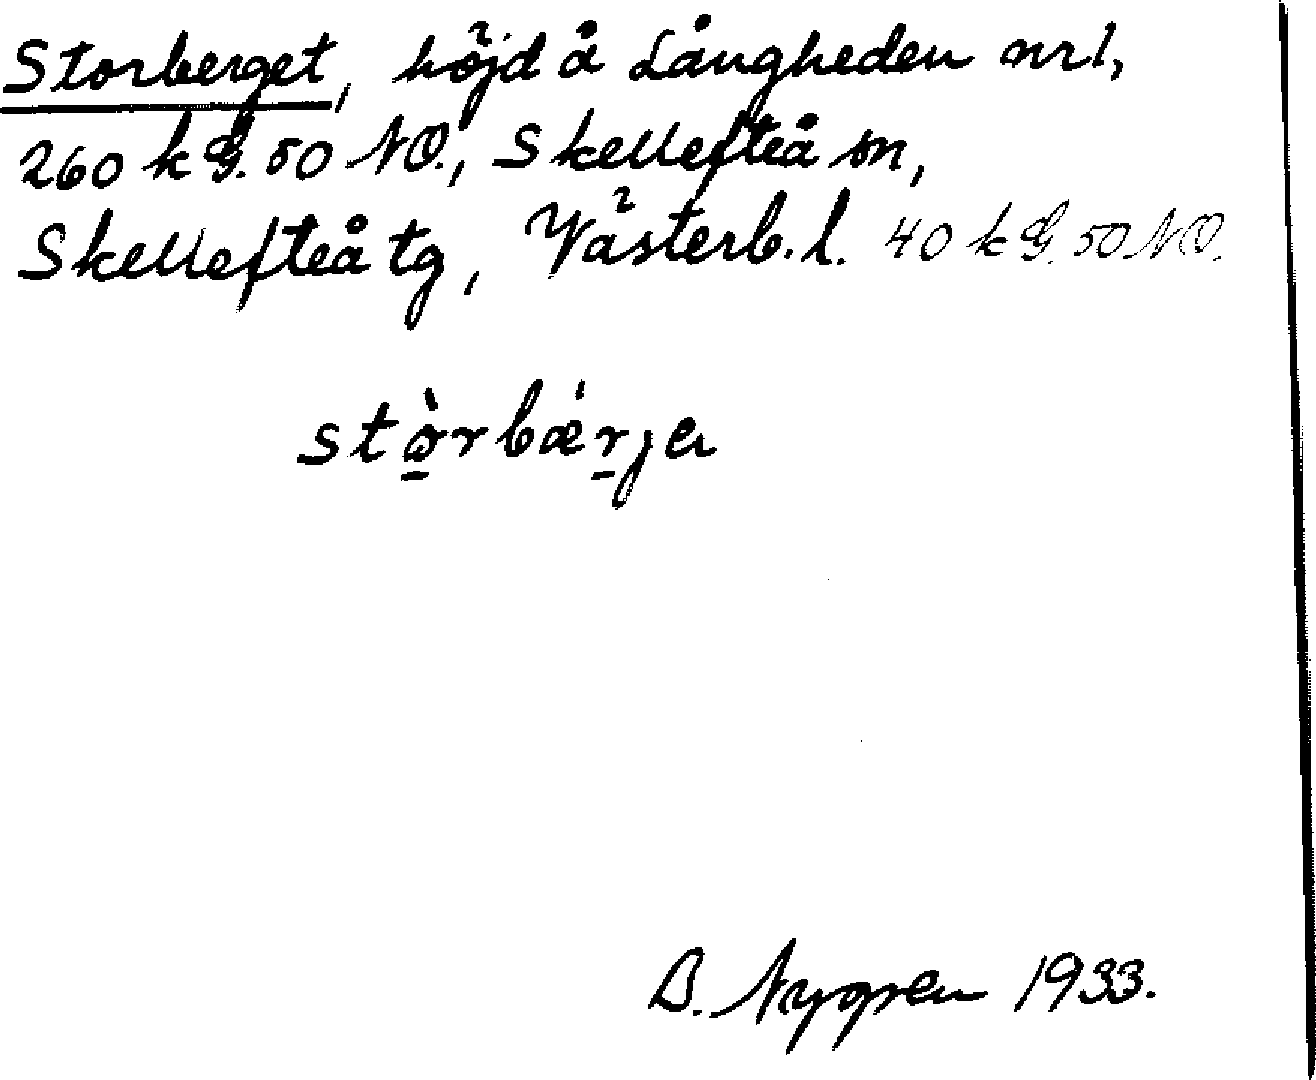 Storberget, höjd å Långheden nr 1,
260 k G. 50 NO., Skellefteå sn,
Skellefteå tg, Västerb. l. 40 k G. 50 NO.
stò̱rbǽṟja
B. Nygren 1933.